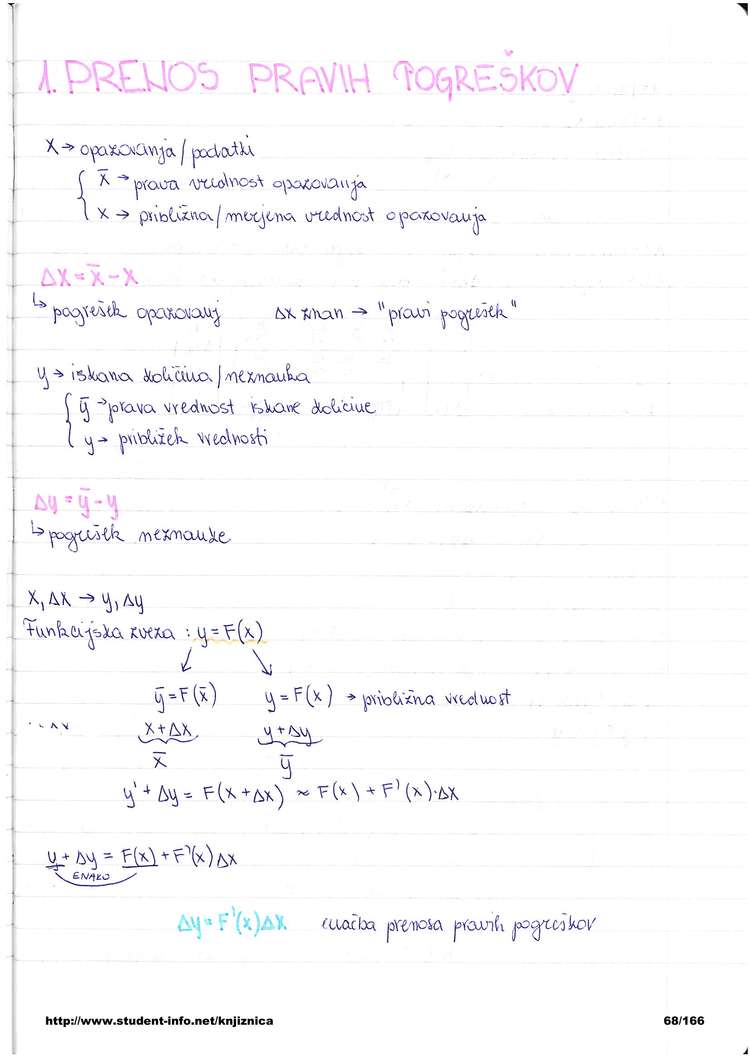 1. PRENOS PRAVIH POGREŠKOV
X → opazovanja / podatki
x̄ → prava vrednost opazovanja
x → približna / merjena vrednost opazovanja
Δx = x̄ - x
↳ pogrešek opazovanj Δx znan → "pravi pogrešek"
y → iskana količina / neznanka
ȳ → prava vrednost iskane količine
y → približek vrednosti
Δy = ȳ - y
↳ pogrešek neznanke
x, Δx → y, Δy
Funkcijska zveza : y = F(x)
ȳ = F(x̄) y = F(x) → približna vrednost
x + Δx y + Δy
x̄ ȳ
y' + Δy = F(x + Δx) ≈ F(x) + F'(x)·Δx
y + Δy = F(x) + F'(x) Δx
ENAKO
Δy = F'(x)Δx enačba prenosa pravih pogreškov
http://www.student-info.net/knjiznica 68/166